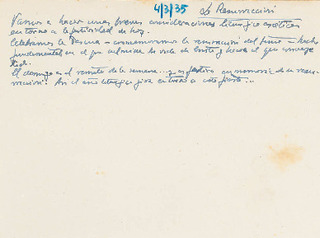 4/3/35 La Resurrección
Vamos a hacer unas breves consideraciones litúrgico ascéticas
en torno a la festividad de hoy.
Celebramos la Pascua - conmemoramos la resurrección del Señor - hecho
fundamental en el que culmina la vida de Cristo y hacia el que converge
todo.
El domingo es el remate de la semana... y es festivo en memoria de la resu-
rrección. Así el año litúrgico gira en torno a esta fiesta...